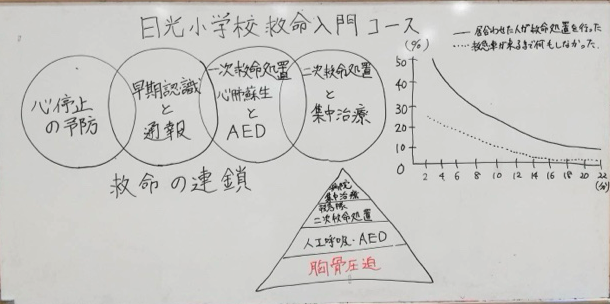 日光小学校 救命入門コース
心停止
の予防
早期認識
と
通報
一次救命処置
心肺蘇生
と
AED
二次救命処置
と
集中治療
救命の連鎖
病院
集中治療
救急隊
二次救命処置
人工呼吸・AED
胸骨圧迫
居合わせた人が救命処置を行った
救急車が来るまで何もしなかった
(%)
50
40
30
20
10
0
2 4 6 8 10 12 14 16 18 20 22
(分)